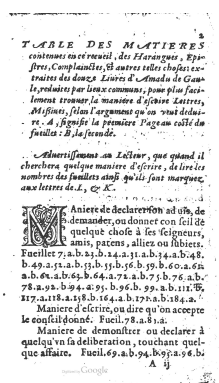 2
TABLE DES MATIERES
contenues en ce recueil, des Harangues, Epi-
stres, Complainctes, & autres telles choses ex-
traites des douze Liures d'Amadis de Gau-
le, reduites par lieux communs, pour plus faci-
lement trouuer la maniere d'escrire Lettres,
Missiues, selon l'argument qu'on veut dedui-
re. A, signifie la premiere Page au costé du
fueillet: B, la seconde.
Aduertissement au Lecteur, que quand il
cherchera quelque maniere d'escrire, de lire les
nombres des fueillets ainsi qu'ils sont marquez
aux lettres de I, & K.
MAniere de declarer son aduis, de
demander, ou donner conseil de
quelque chose à ses seigneurs,
amis, parens, alliez ou subiets.
Fueillet 7.a.b.23.b.24.a.31.b.34.a.b.48.
b.49.a.51.a.b.53.b.55.b.56.b.59.b.60.a.61.
a.b.62.a.b.64.b.64.a.72.a.b.75.b.76.a.b.
78.a.92.b.94.a.95.b.96.b.99.a.b.111.b.
117.a.118.a.158.b.164.a.b.171.a.b.184.a.
Maniere d'escrire, ou dire qu'on accepte
le conseil donné. Fueil.78.a.81.a.
Maniere de demonstrer ou declarer à
quelqu'vn sa deliberation, touchant quel-
que affaire. Fueil.69.a.b.94.b.95.a.96.b.
A ij
Google